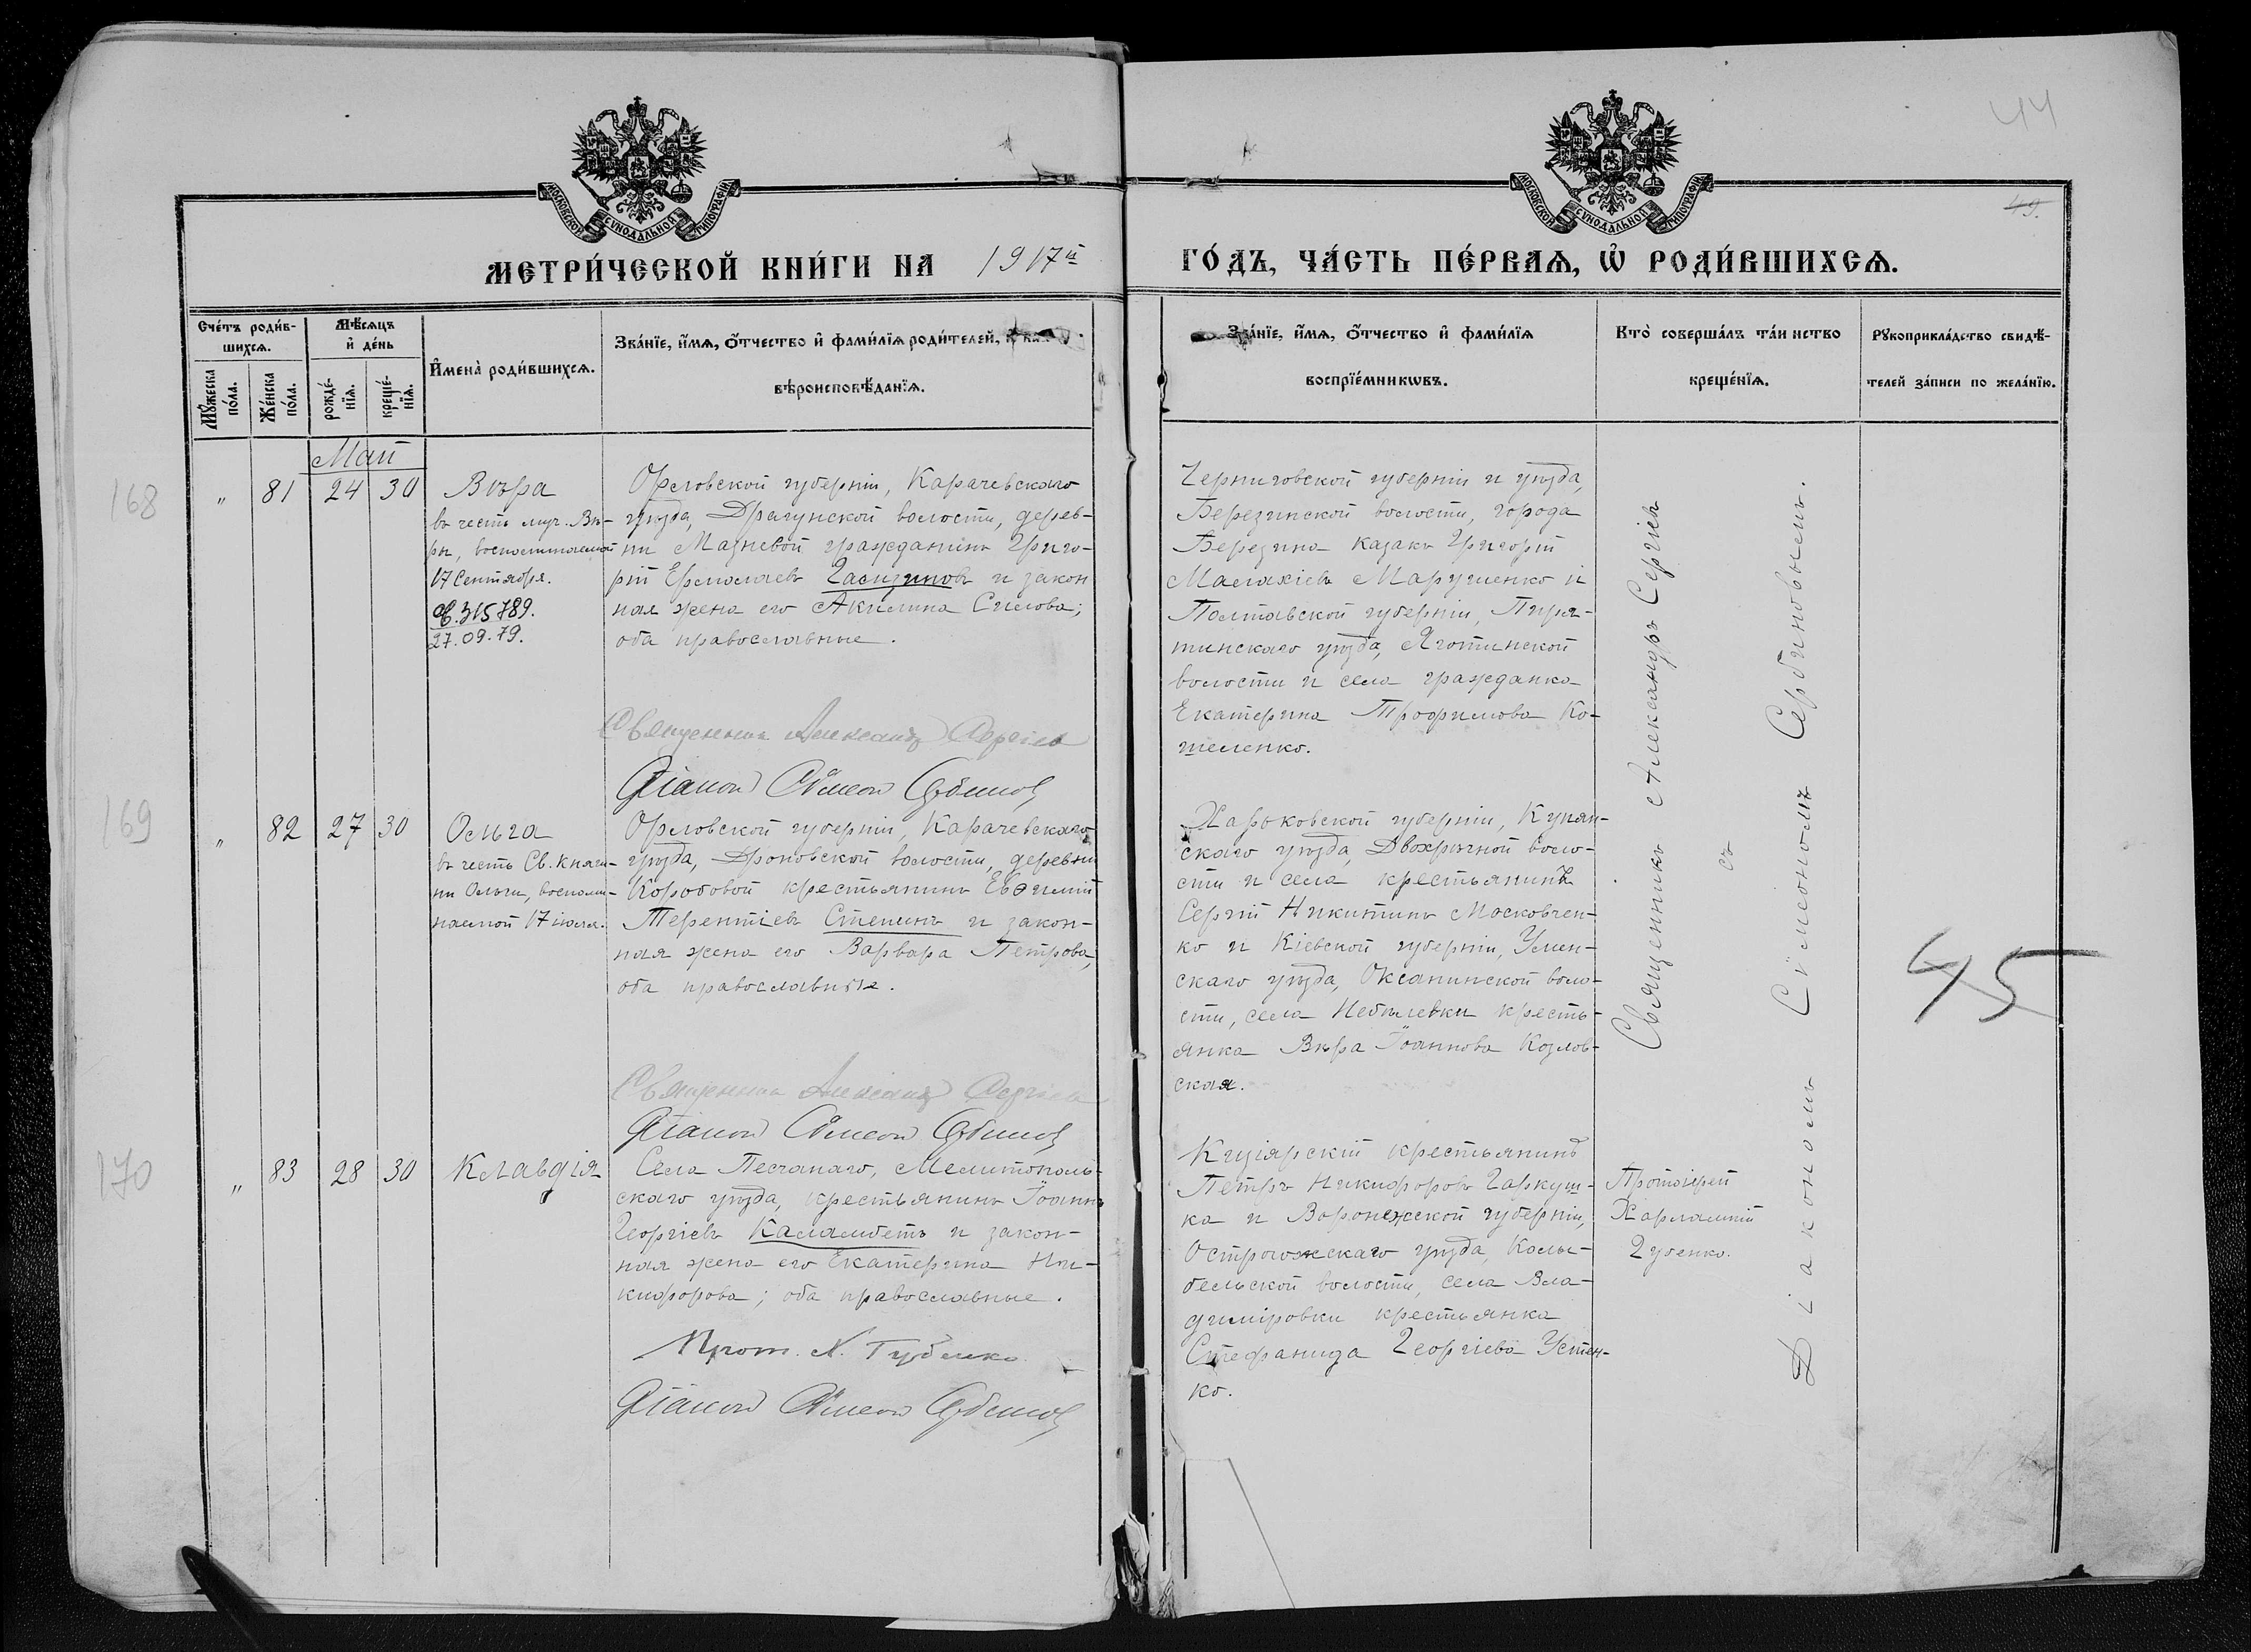 44
49.
МОСКОВСКОЙ СУНОДАЛЬНОЙ ТИПОГРАФІИ
МОСКОВСКОЙ СУНОДАЛЬНОЙ ТИПОГРАФІИ
МЕТРИ́ЧЕСКОЙ КНИ́ГИ НА 1917й
ГО́ДЪ, ЧА́СТЬ ПЕ́РВАЯ, Ѡ РОДИ́ВШИХСЯ.
Сче́тъ роди́в-
шихся.
Му́жеска по́ла.
Же́нска по́ла.
Мѣ́сяцъ
и де́нь
рожде́-
нія.
креще́-
нія.
Имена̀ роди́вшихся.
Зва́ніе, и́мя, о́тчество и фами́лія роди́телей, и
вѣроисповѣ́данія.
Зва́ніе, и́мя, о́тчество и фами́лія
воспріе́мникωвъ.
Кто̀ соверша́лъ та́инство
креще́нія.
Рукоприкла́дство свидѣ́-
телей за́писи по жела́нію.
Май
168
" 81 24 30
Вѣра
въ честь муч. Вѣ-
ры, воспоминаемой
17 Сентября.
315789.
27.09.79.
Орловской губерніи, Карачевскаго
уѣзда, Драгунской волости, дерев-
ни Мазневой гражданинъ Григо-
рій Ермолаевъ и закон
ная жена его Акилина Силова;
оба православные.
Священникъ Александръ Сергіевъ
Діаконъ Симеонъ Сербиновъ
Черниговской губерніи и уѣзда,
Березинской волости, города
Березина казакъ Григорій
Малахіевъ Марушенко и
Полтавской губерніи, Пиря-
тинскаго уѣзда, Яготинской
волости и села гражданка
Екатерина Трофимова Ко-
шеленко.
169
" 82 27 30
Ольга
въ честь Св. княги-
ни Ольги, воспоми-
наемой 17 іюля.
Орловской губерніи, Карачевскаго
уѣзда, Дроновской волости, деревни
Коробовой крестьянинъ Евѳимій
Терентіевъ Степинъ и закон-
ная жена его Варвара Петрова,
оба православные.
Священникъ Александръ Сергіевъ
Діаконъ Симеонъ Сербиновъ
Харьковской губерніи, Купян-
скаго уѣзда, Двохрѣчной воло-
сти и села крестьянинъ
Сергій Никитинъ Московчен-
ко и Кіевской губерніи, Уман-
скаго уѣзда, Оксанинской воло-
сти, села Небѣлевки кресть-
янка Вѣра Іоаннова Козлов-
ская.
170
" 83 28 30
Клавдія
Села Песчанаго, Мелитополь-
скаго уѣзда, крестьянинъ Іоаннъ
Георгіевъ Каламбетъ и закон-
ная жена его Екатерина Ни-
кифорова; оба православные.
Прот. Х. Губенко.
Діаконъ Симеонъ Сербиновъ
Кизіярскій крестьянинъ
Петръ Никифоровъ Гаркуш-
ка и Воронежской губерніи,
Острогожскаго уѣзда, Колы-
бельской волости, села Вла-
диміровки крестьянка
Стефанида Георгіева Устен-
ко.
Протоіерей
Харлампій
Губенко.
Священникъ Александръ Сергіевъ
съ
Діакономъ Симеономъ Сербиновымъ.
45